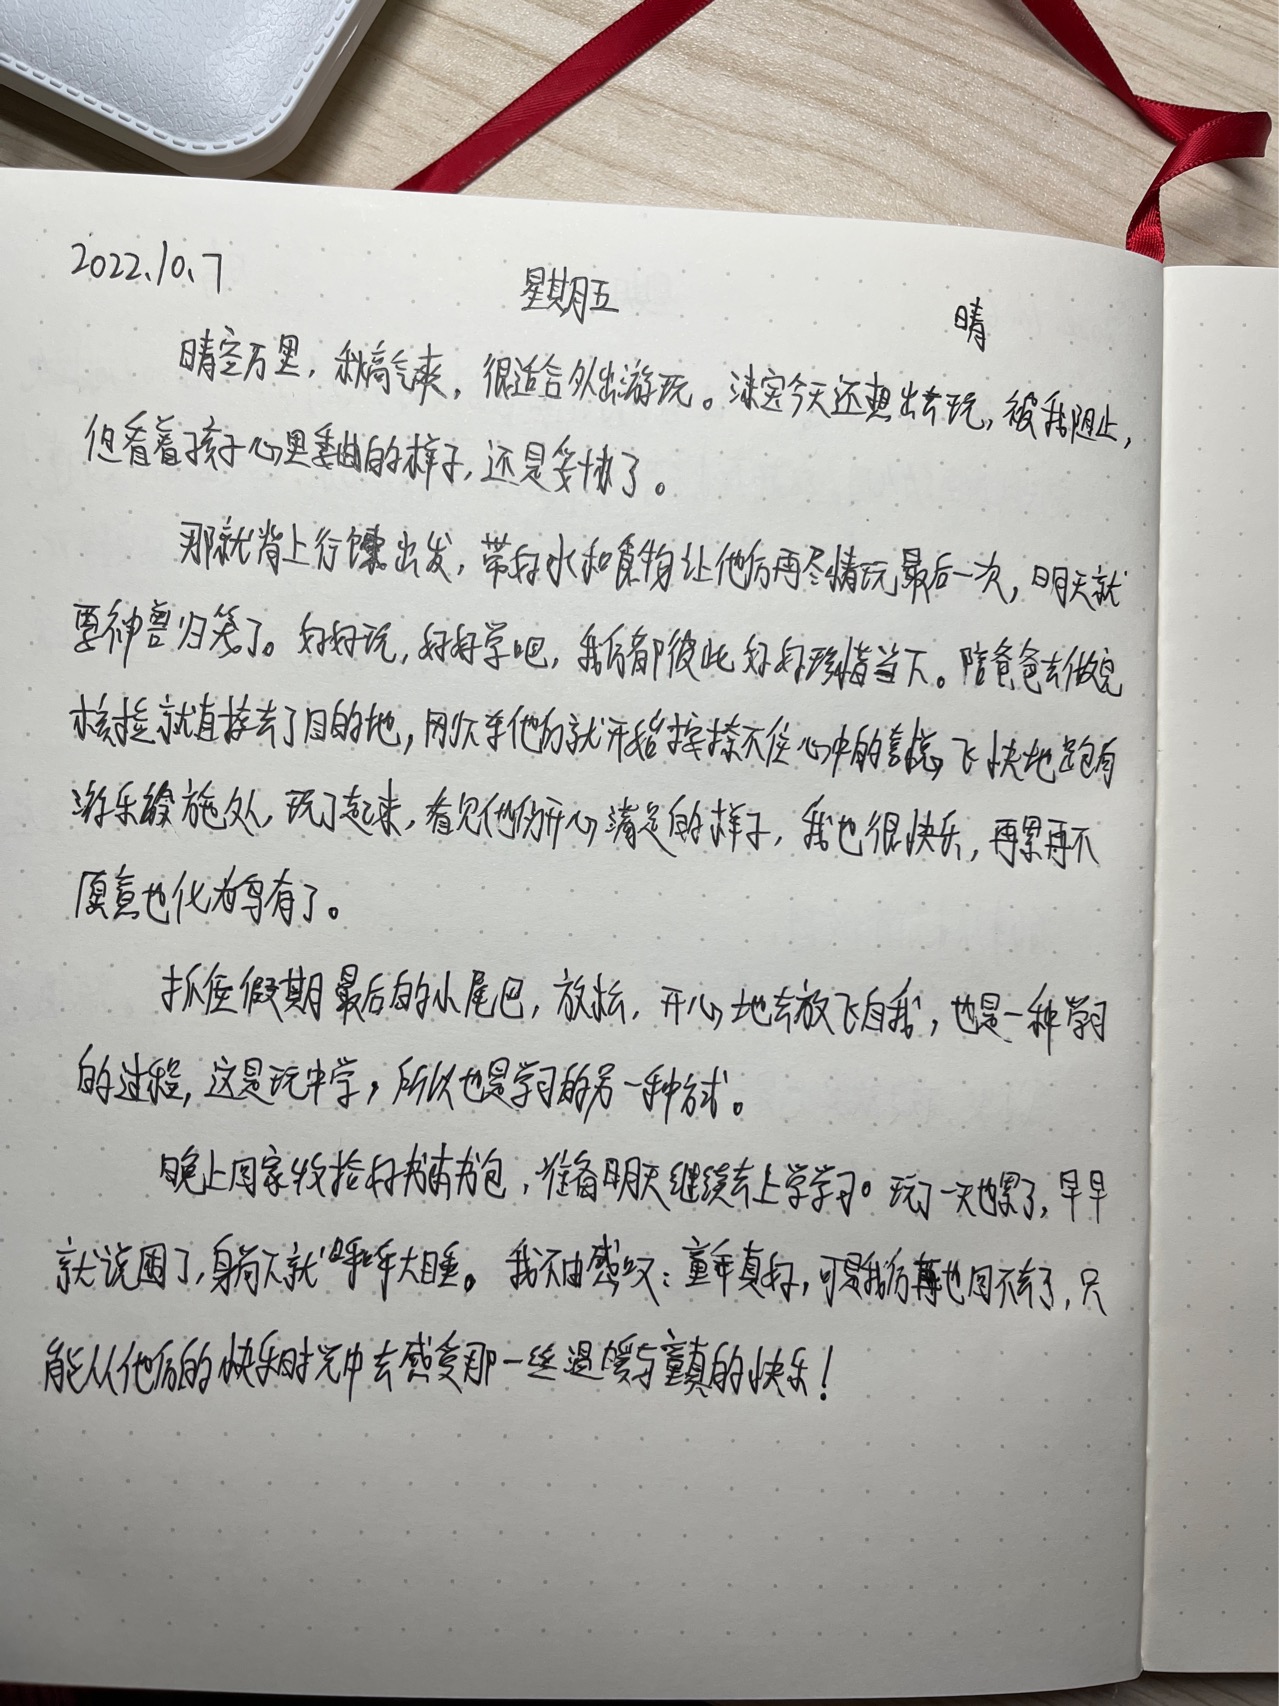 2022.10.7 星期五 晴
晴空万里，秋高气爽，很适合外出游玩。决定今天还想出去玩，被我阻止，
但看着孩子心里委曲的样子，还是妥协了。
那就背上行囊出发，带好水和食物让他们再尽情玩最后一次，明天就
要神兽归笼了。好好玩，好好学吧，我们都彼此好好珍惜当下。陪爸爸去做完
核捡就直接去了目的地，刚下车他们就开始按捺不住心中的喜悦，飞快地跑向
游乐设施处，玩了起来，看见他们开心满足的样子，我也很快乐，再累再不
愿意也化为乌有了。
抓住假期最后的小尾巴，放松，开心地去放飞自我，也是一种学习
的过程，这是玩中学，所以也是学习的另一种方式。
晚上回家收拾好书本书包，准备明天继续去上学学习。玩了一天也累了，早早
就说困了，身尚下就呼呼大睡。我不由感叹：童年真好，可是我们再也回不去了，只
能从他们的快乐时光中去感受那一丝温暖与童真的快乐！